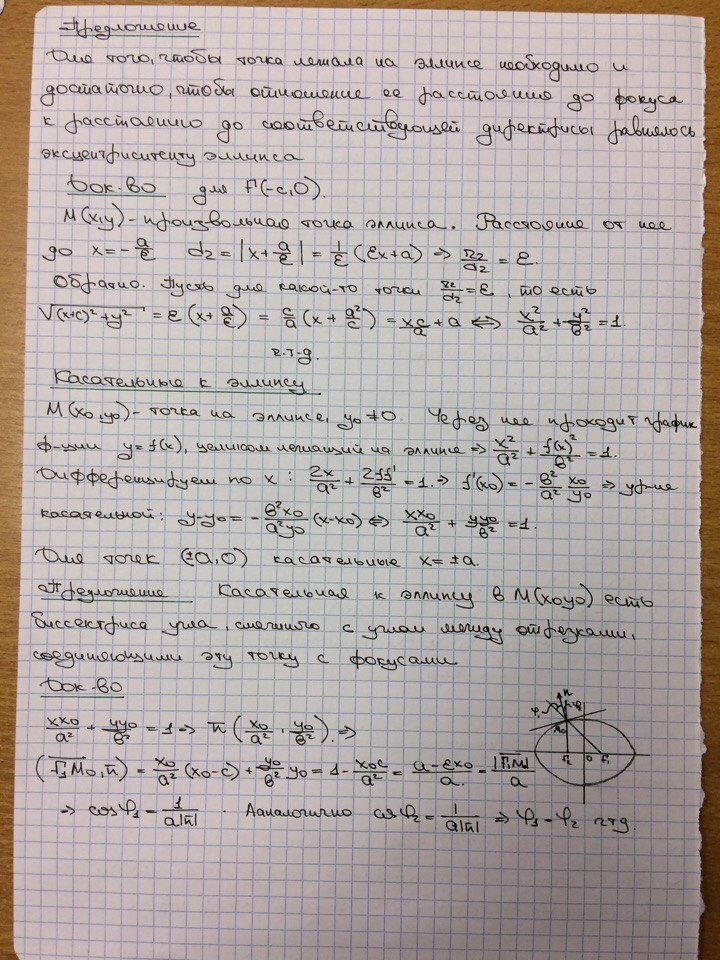 Предложение
Для того, чтобы точка лежала на эллипсе необходимо и
достаточно, чтобы отношение ее расстояние до фокуса
к расстоянию до соответствующей директрисы равнялось
эксцентриситету эллипса
Док-во для F(-c, 0).
M(x,y) - произвольная точка эллипса. Расстояние от нее
до x = -a/ε d₂ = |x + a/ε| = 1/ε (εx + a) ⇒ r₂/d₂ = ε.
Обратно. Пусть для какой-то точки r₂/d₂ = ε, то есть
√((x+c)² + y²) = ε (x + a/ε) = c/a (x + a²/c) = xc/a + a ⇔ x²/a² + y²/b² = 1.
ч.т.д.
Касательные к эллипсу
M(x₀, y₀) - точка на эллипсе, y₀ ≠ 0. Через нее проходит график
ф-ции y = f(x), целиком лежащий на эллипсе ⇒ x²/a² + f(x)²/b² = 1.
Дифференцируем по x: 2x/a² + 2ff'/b² = 1. ⇒ f'(x₀) = -b²/a² x₀/y₀ ⇒ ур-ие
касательной: y-y₀ = -b²x₀/a²y₀ (x-x₀) ⇔ xx₀/a² + yy₀/b² = 1.
Для точек (±a, 0) касательные x = ±a.
Предложение Касательная к эллипсу в M(x₀y₀) есть
биссектриса угла, смежного с углом между отрезками,
соединяющими эту точку с фокусами
Док-во
xx₀/a² + yy₀/b² = 1 ⇒ n̄ (x₀/a², y₀/b²). ⇒
(F₁M₀, n̄) = x₀/a² (x₀-c) + y₀/b² y₀ = 1 - x₀c/a² = a-εx₀/a = |F₁M₀|/a
⇒ cosφ₁ = 1/a|n̄| . Аналогично cosφ₂ = 1/a|n̄| ⇒ φ₁ = φ₂ чтд.
n
φ₁
φ₂
M₀
F₂
O
F₁